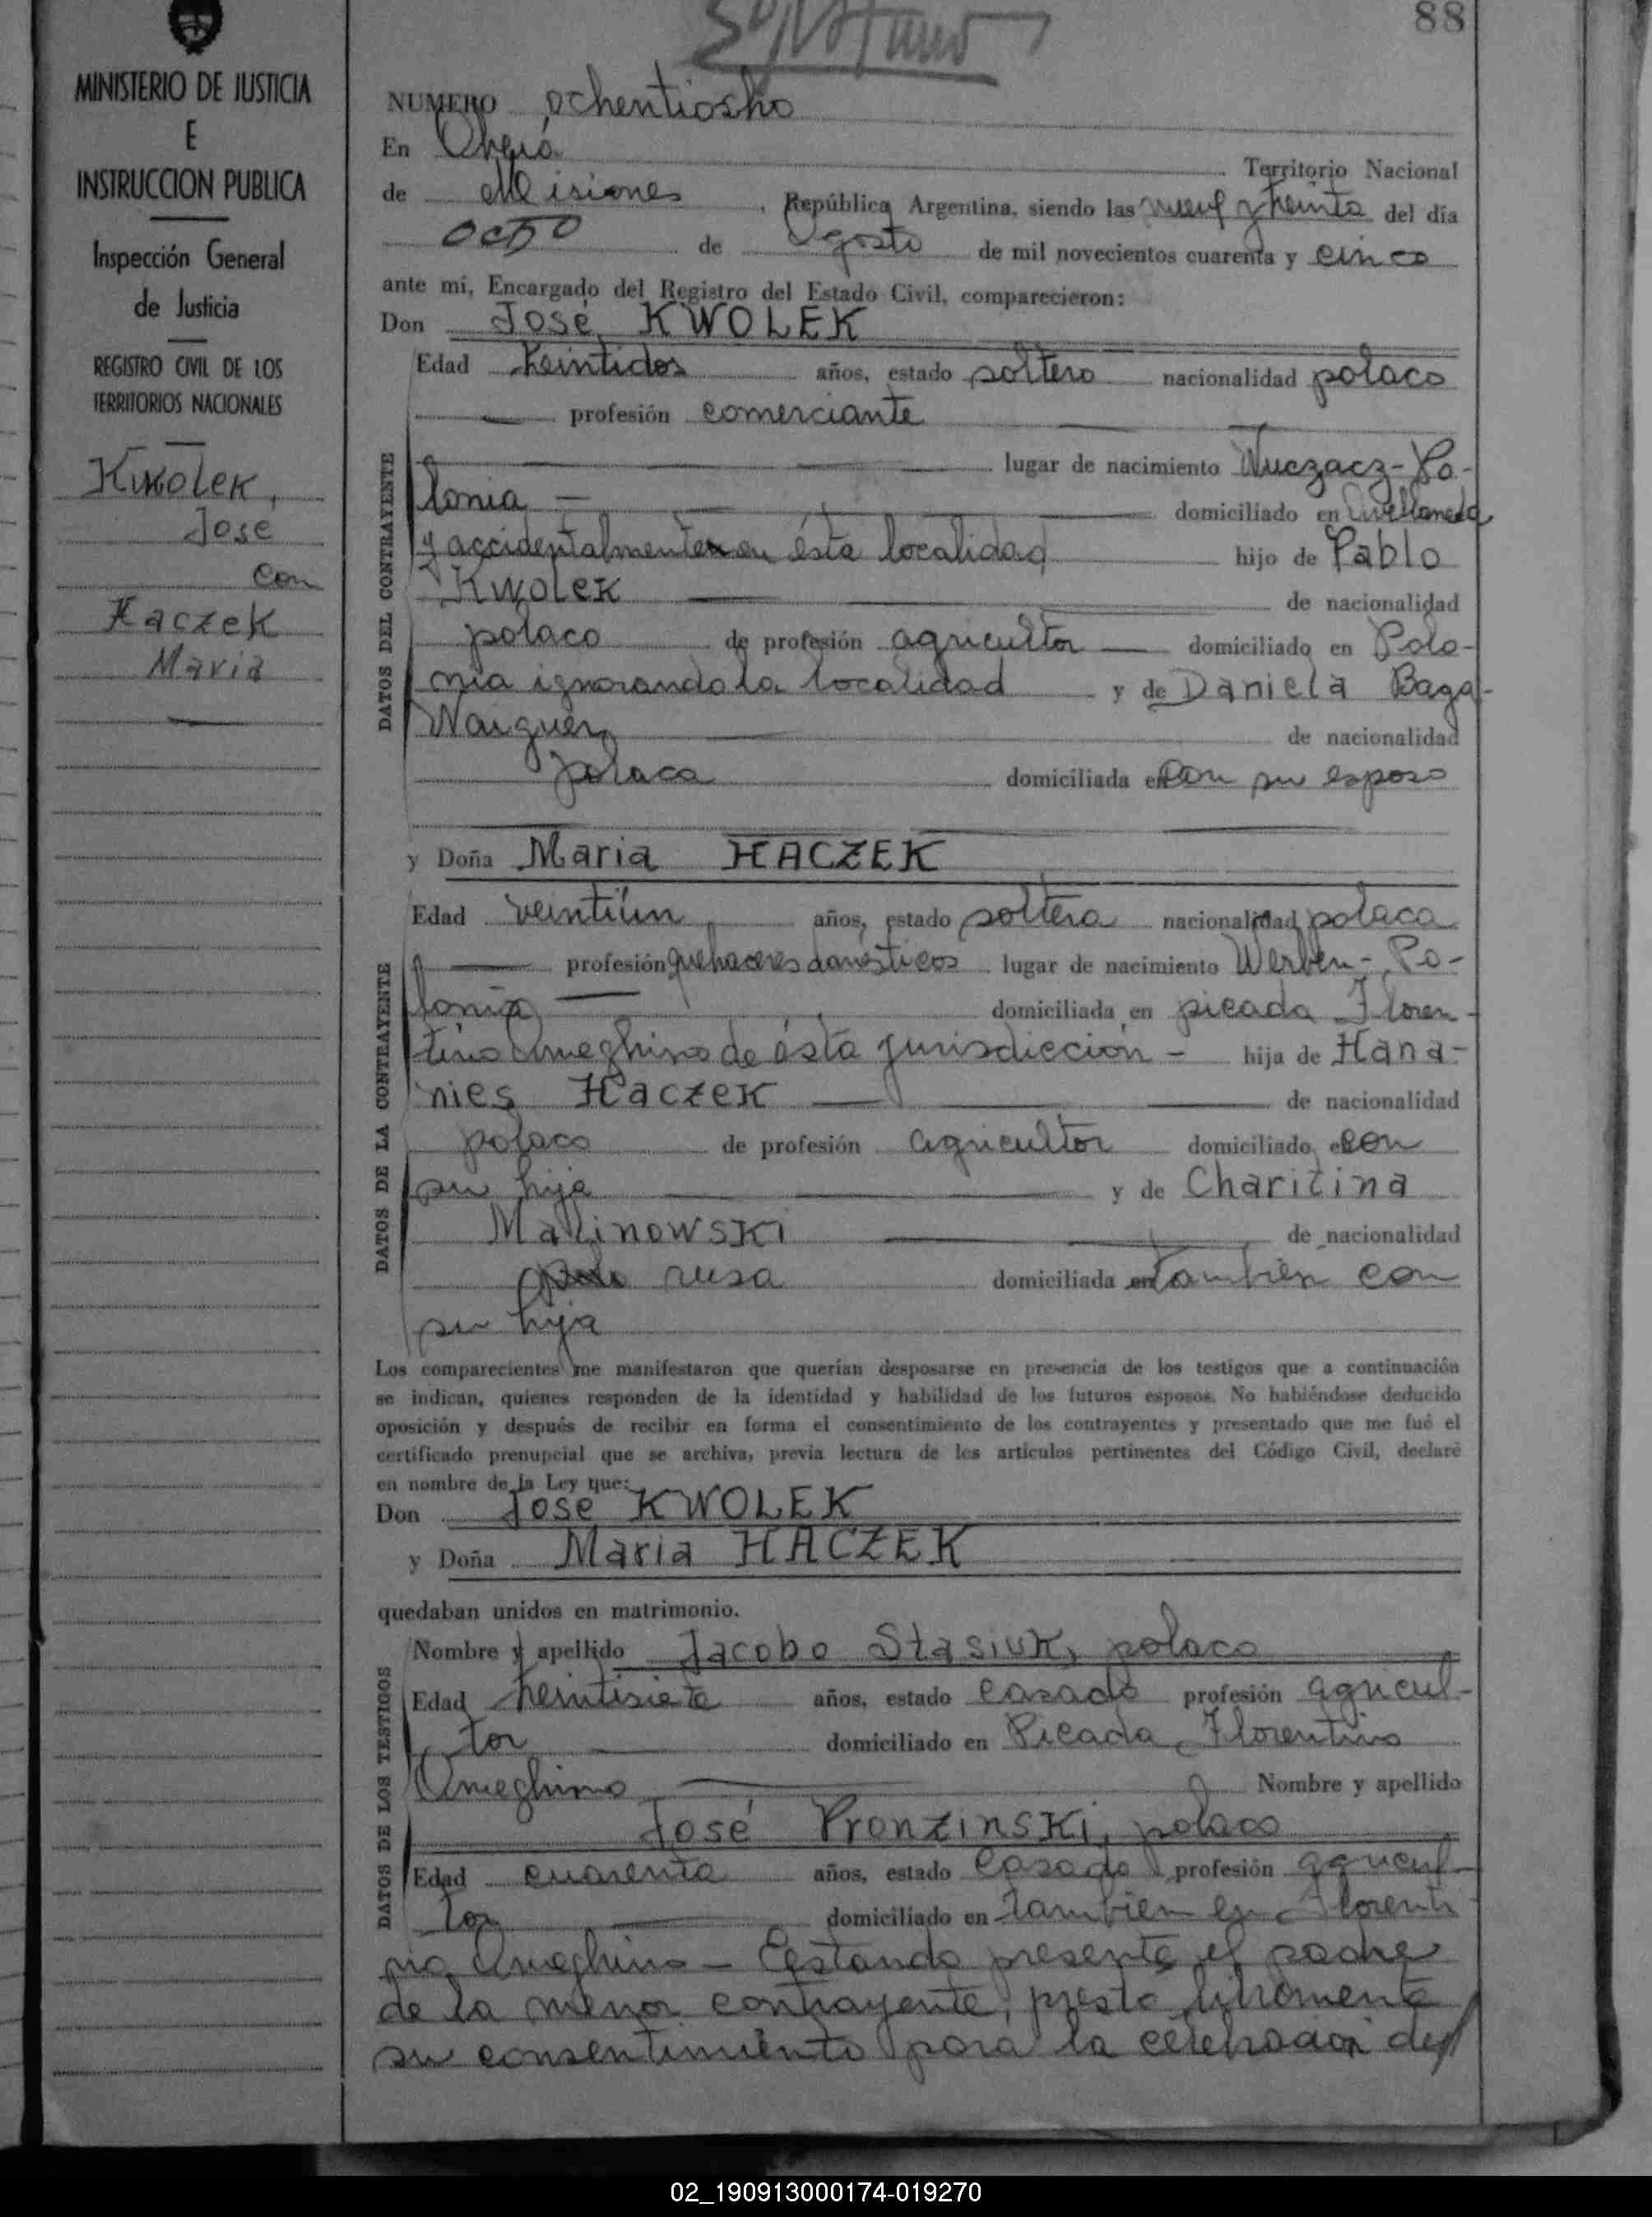 88
MINISTERIO DE JUSTICIA
E
INSTRUCCION PUBLICA
Inspección General
de Justicia
REGISTRO CIVIL DE LOS
TERRITORIOS NACIONALES
Kwolek,
Jose
con
Haczek
Maria
NUMERO ochentiocho
En Oberá
Territorio Nacional
de Misiones, República Argentina, siendo las nueve y treinta del día
ocho de Agosto de mil novecientos cuarenta y cinco
ante mí, Encargado del Registro del Estado Civil, comparecieron:
Don José KWOLEK
DATOS DEL CONTRAYENTE
Edad treintidos años, estado soltero nacionalidad polaco
profesión comerciante
lugar de nacimiento Wuczacz - Po-
lonia - domiciliado en Avellaneda
y accidentalmente en ésta localidad hijo de Pablo
Kwolek de nacionalidad
polaco de profesión agricultor domiciliado en Polo-
nia ignorando la localidad y de Daniela Baga-
de nacionalidad
polaca domiciliada en con su esposo
y Doña Maria HACZEK
DATOS DE LA CONTRAYENTE
Edad veintiún años, estado soltera nacionalidad polaca
profesión quehaceres domésticos lugar de nacimiento Werben - Po-
lonia domiciliada en picada Floren-
tino Ameghino de ésta jurisdicción - hija de Hana-
nies Haczek de nacionalidad
polaco de profesión agricultor domiciliado en con
su hija y de Charitina
Malinowski de nacionalidad
rusa domiciliada en tambien con
su hija
Los comparecientes me manifestaron que querían desposarse en presencia de los testigos que a continuación
se indican, quienes responden de la identidad y habilidad de los futuros esposos. No habiéndose deducido
oposición y después de recibir en forma el consentimiento de los contrayentes y presentado que me fué el
certificado prenupcial que se archiva, previa lectura de los artículos pertinentes del Código Civil, declaré
en nombre de la Ley que:
Don José KWOLEK
y Doña Maria HACZEK
quedaban unidos en matrimonio.
DATOS DE LOS TESTIGOS
Nombre y apellido Jacobo Stasiuk, polaco
Edad treintisiete años, estado casado profesión agricul-
tor domiciliado en Picada Florentino
Ameghino Nombre y apellido
José Pronzinski, polaco
Edad cuarenta años, estado casado profesión agricul-
tor domiciliado en tambien en Florenti
no Ameghino - Estando presente el padre
de la menor contrayente, prestó libremente
su consentimiento para la celebración del
02_190913000174-019270